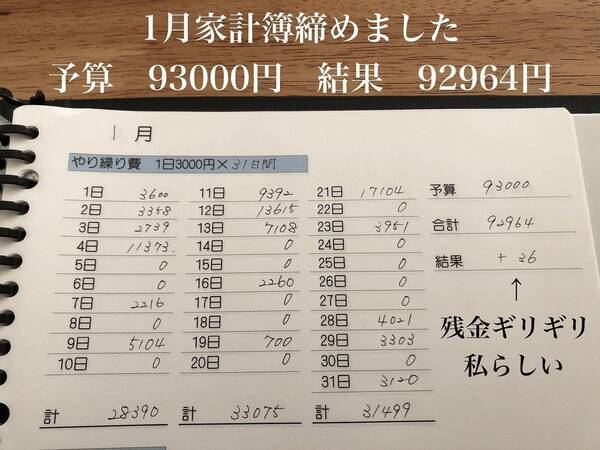 1月家計簿締めました
予算 93000円 結果 92964円
1月
やり繰り費 1日3000円×31日間
1日 3600
2日 3358
3日 2739
4日 11373
5日 0
6日 0
7日 2216
8日 0
9日 5104
10日 0
計 28390
11日 9392
12日 13615
13日 7108
14日 0
15日 0
16日 2260
17日 0
18日 0
19日 700
20日 0
計 33075
21日 17104
22日 0
23日 3951
24日 0
25日 0
26日 0
27日 0
28日 4021
29日 3303
30日 0
31日 3120
計 31499
予算 93000
合計 92964
結果 +36
↑
残金ギリギリ
私らしい